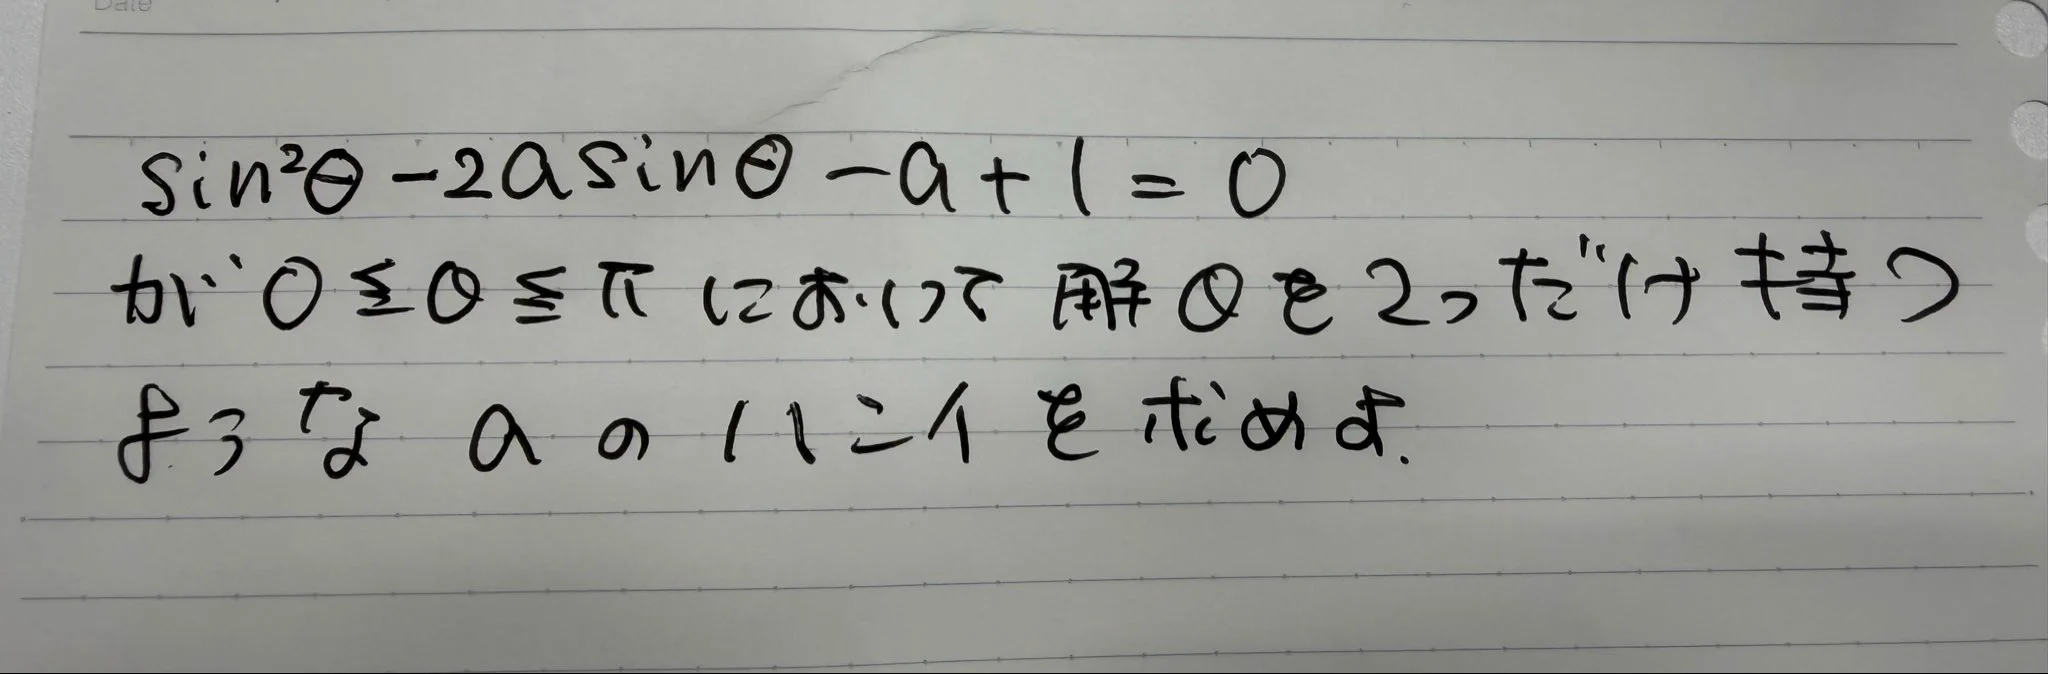 Date
sin²θ-2asinθ-a+1=0
が0≦θ≦πにおいて解θを2つだけ持つ
ような aのハンイを求めよ.